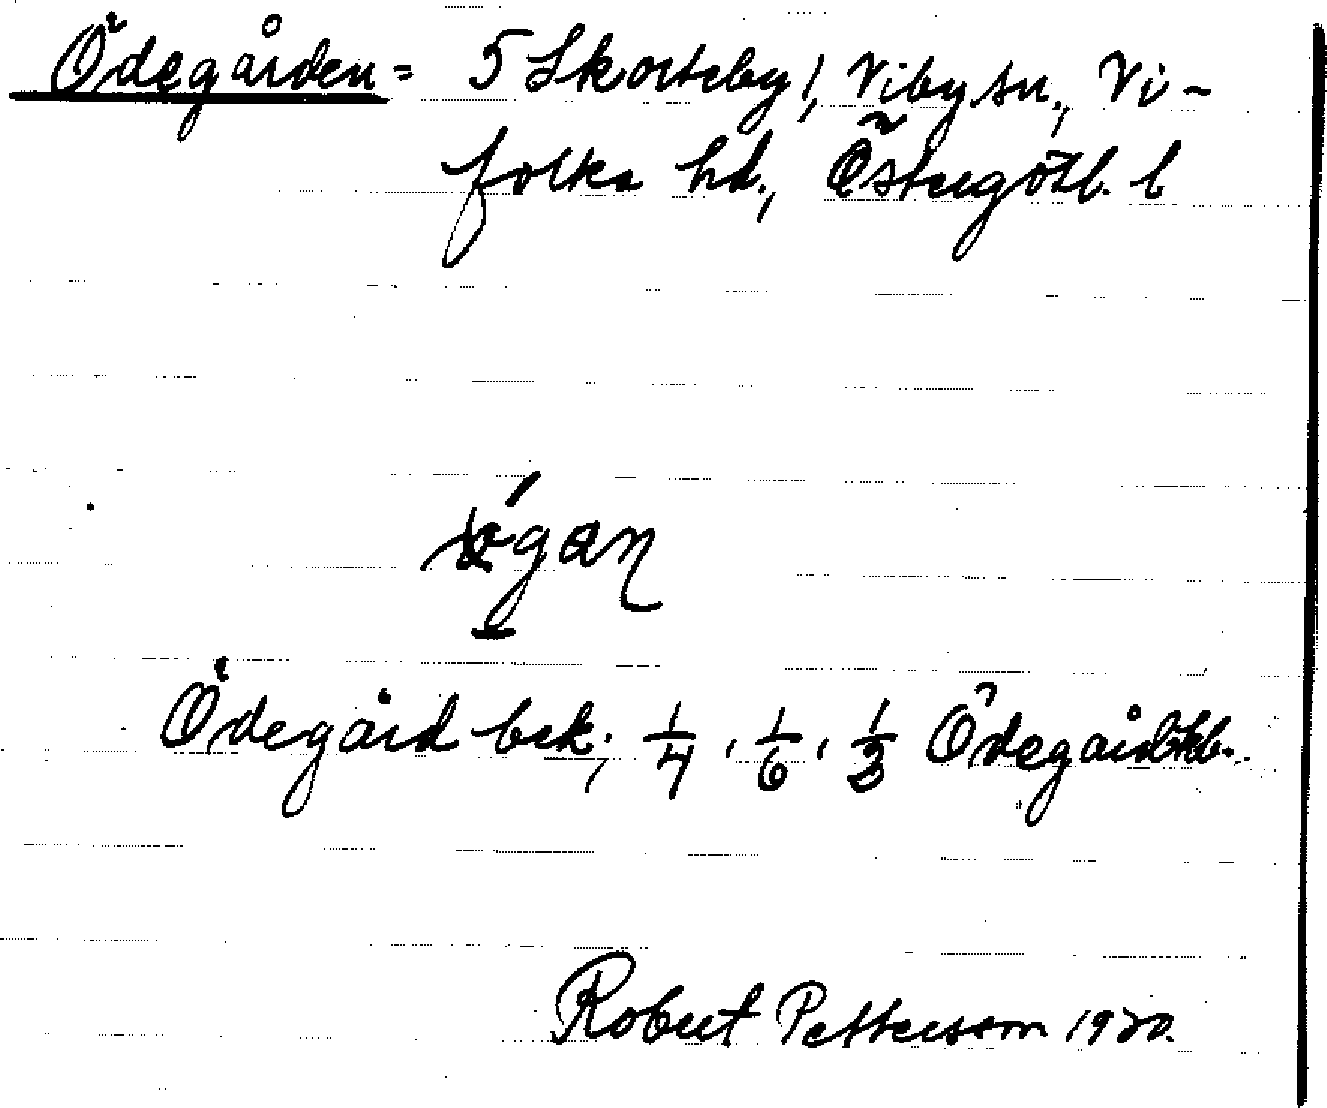 Ödegården = 5 Skorteby!, Viby sn., Vi-
folka hd., Östergötl. l
Ödegård bek; 1/4, 1/6, 1/3 Ödegård
Robert Pettersson 1920.